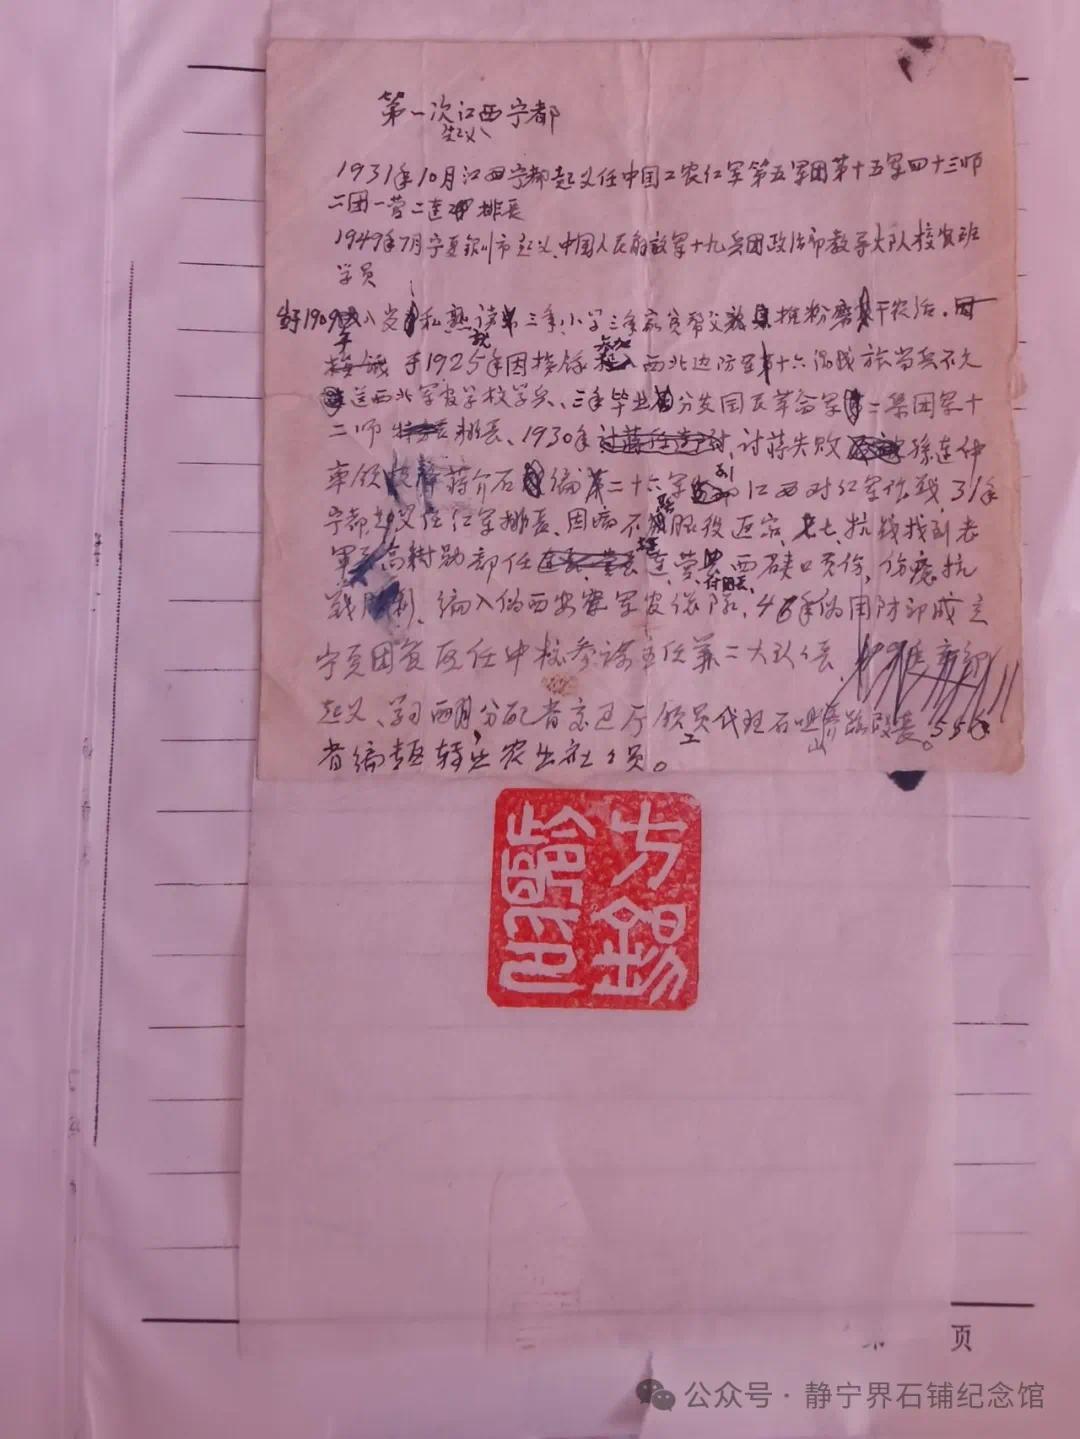 第一次江西宁都
起义
1931年10月江西宁都起义任中国工农红军第五军团第十五军四十三师
二团一营二连 排长
1949年7月宁夏银川市起义、中国人民解放军十九兵团政治部教导大队校官班
学员
生于1909年 八岁 私熟读书三年、小学三年家贫帮父 推粉磨 干农活.
于1925年因 参加西北边防军第十六 旅当兵不久
送西北军官学校学兵、三年毕业 分发国民革命军第二集团军十
二师 排长、1930年 讨蒋失败 孙连仲
率领 蒋介石 编第二十六军 到江西对红军作战,31年
宁都起义任红军排长、因病不 服役返家、七七抗战找到老
军长高树勋部任 连、营 付团长、西硖口负伤,伤愈抗
战胜利、编入伪西安 军官总队,46年伪国防部成立
宁夏 任中校参谋主任兼二大队长、
起义、学习 两月分配省交通厅 员工代理石咀山养路段长。55年
省编 转 农业社社员。
方锡龄印
页
公众号 · 静宁界石铺纪念馆